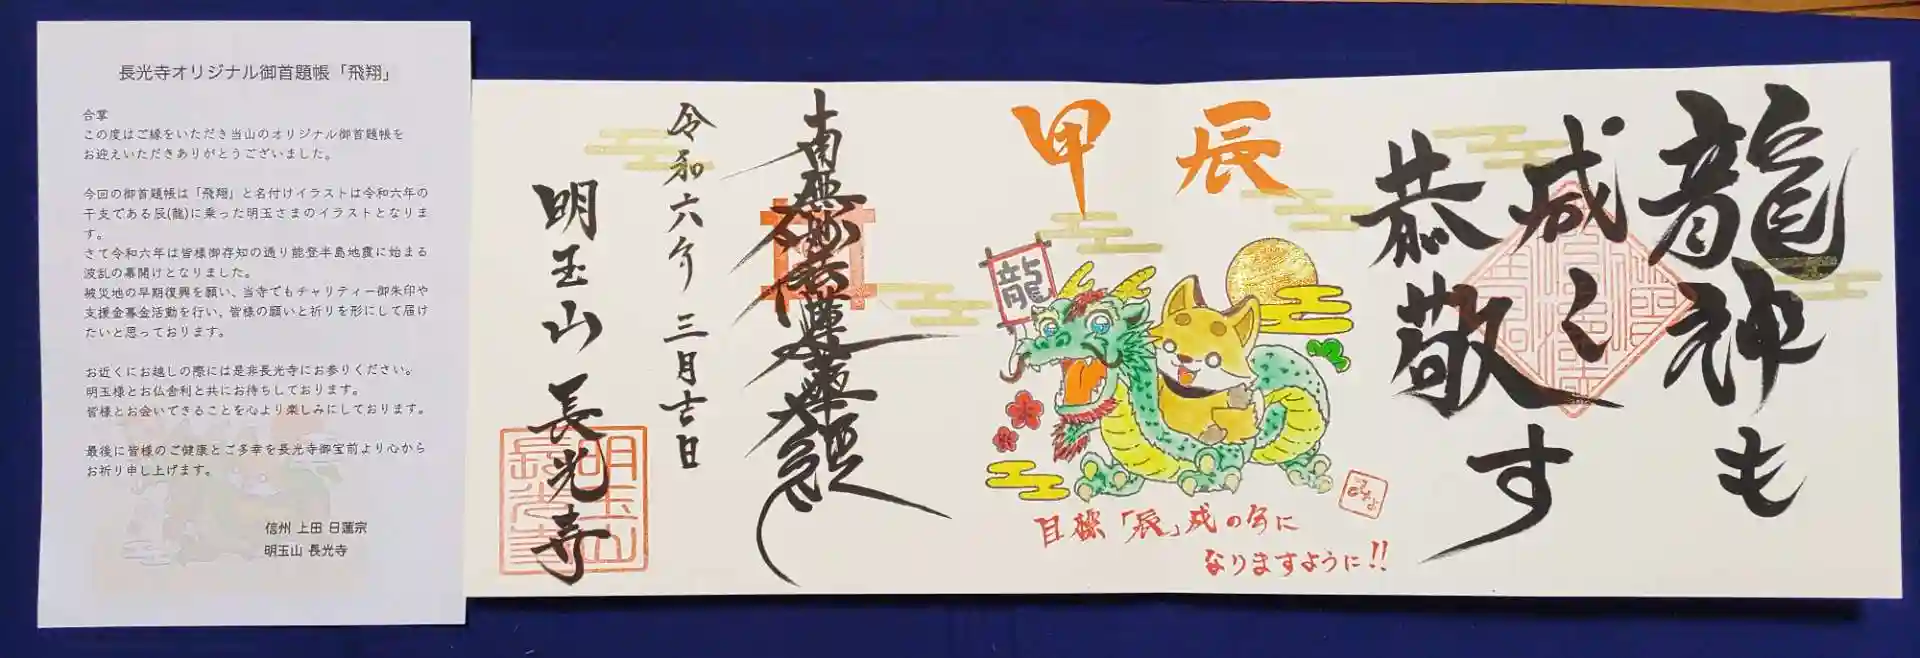 長光寺オリジナル御首題帳「飛翔」
合掌
この度はご縁をいただき当山のオリジナル御首題帳を
お迎えいただきありがとうございました。
今回の御首題帳は「飛翔」と名付けイラストは令和六年の
干支である辰(龍)に乗った明玉さまのイラストとなりま
す。
さて令和六年は皆様御存知の通り能登半島地震に始まる
波乱の幕開けとなりました。
被災地の早期復興を願い、当寺でもチャリティー御朱印や
支援金募金活動を行い、皆様の願いと祈りを形にして届け
たいと思っております。
お近くにお越しの際には是非長光寺にお参りください。
明玉様とお仏舎利と共にお待ちしております。
皆様とお会いできることを心より楽しみにしております。
最後に皆様のご健康とご多幸を長光寺御宝前より心から
お祈り申し上げます。
信州 上田 日蓮宗
明玉山 長光寺
龍神も
咸く
恭敬す
辰
甲
龍
目標「辰」成の年に
なりますように!!
南無妙法蓮華経
令和六年 三月吉日
明玉山 長光寺
明玉山
長光寺